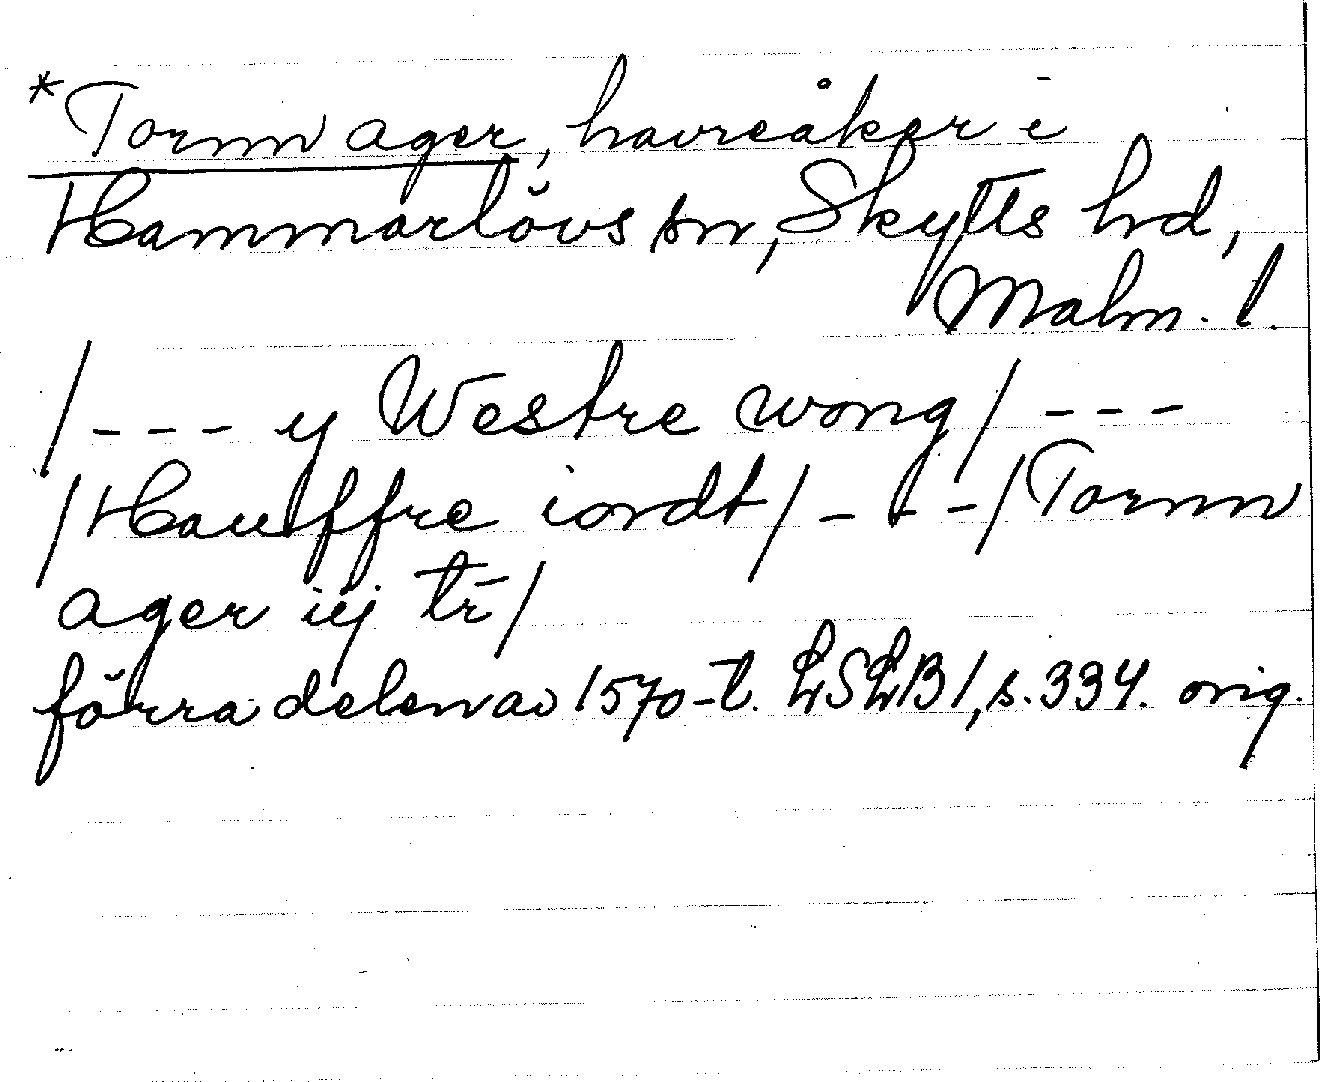 *Tornn ager, havreåker i
Hammarlövs sn, Skytts hd,
Malm. l.
/--- y Westre wong/ ---
/Hauffre iordt/ --- /Tornn
ager iij tr̄/
förra delen av 1570-t. LSLB1, s. 334. orig.